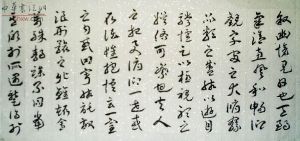 叙幽情是日也天朗
氣清惠風和暢仰
觀宇宙之大俯察
品類之盛所以遊目
騁懷足以極視聽之
娛信可樂也夫人
之相與俯仰一世或
取諸懷抱悟言一室
之內或因寄所託放
浪形骸之外雖趣舍
萬殊靜躁不同當
其欣於所遇暫得於